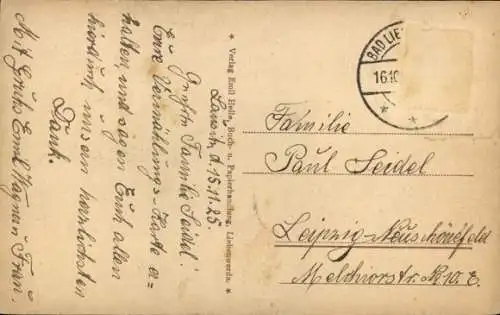 Lausitz, d. 15.11.25
Großte Familie Seidel!
Eure Vermählungs-Karte er=
halten, und sagen Euch allen
hierdurch unsern herzlichsten
Dank.
Mit Gruß Emil Wagner u. Frau.
* Verlag Emil Helle, Buch- u. Papierhandlung, Liebenwerda. *
BAD LIE
16.10
Familie
Paul Seidel
Leipzig-Neuschönefeld
Melchiorstr. N. 10. E.